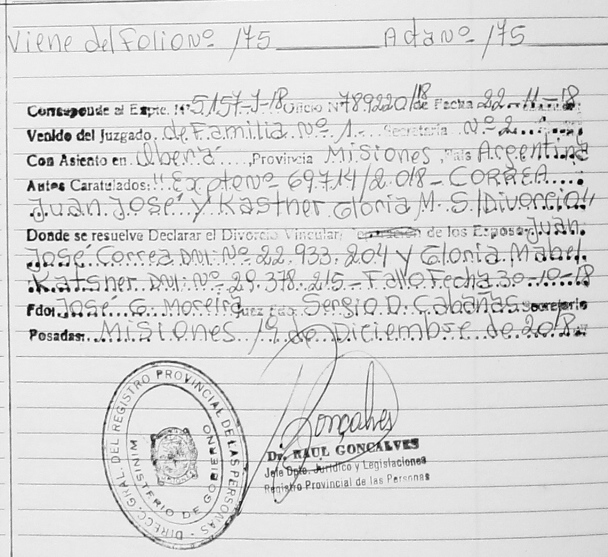 Viene del Folio Nº 175 Acta Nº 175
Corresponde al Expte. Nº 5157-J-18 Oficio Nº 789220/18 de Fecha 22-11-18
Venido del Juzgado de Familia Nº 1 Secretaria Nº 2
Con Asiento en Oberá, Provincia Misiones, País Argentina
Autos Caratulados: "Expte Nº 69714/2018 - CORREA
Juan José y Kastner Gloria M. S/ Divorcio"
Donde se resuelve Declarar el Divorcio Vincular de los Esposos Juan
José Correa DNI: Nº 22.933.204 y Gloria Mabel
Katsner DNI: Nº 29.378.215 - Fallo Fecha 30-10-18
Fdo: José G. Moreira Juez Fdo. Sergio D. Cabañas Secretario
Posadas: Misiones 19 de Diciembre de 2018
Goncalves
Dr. RAUL GONCALVES
Jefe Dpto. Jurídico y Legislaciones
Registro Provincial de las Personas
DIRECC. GRAL. DEL REGISTRO PROVINCIAL DE LAS PERSONAS
MINISTERIO DE GOBIERNO